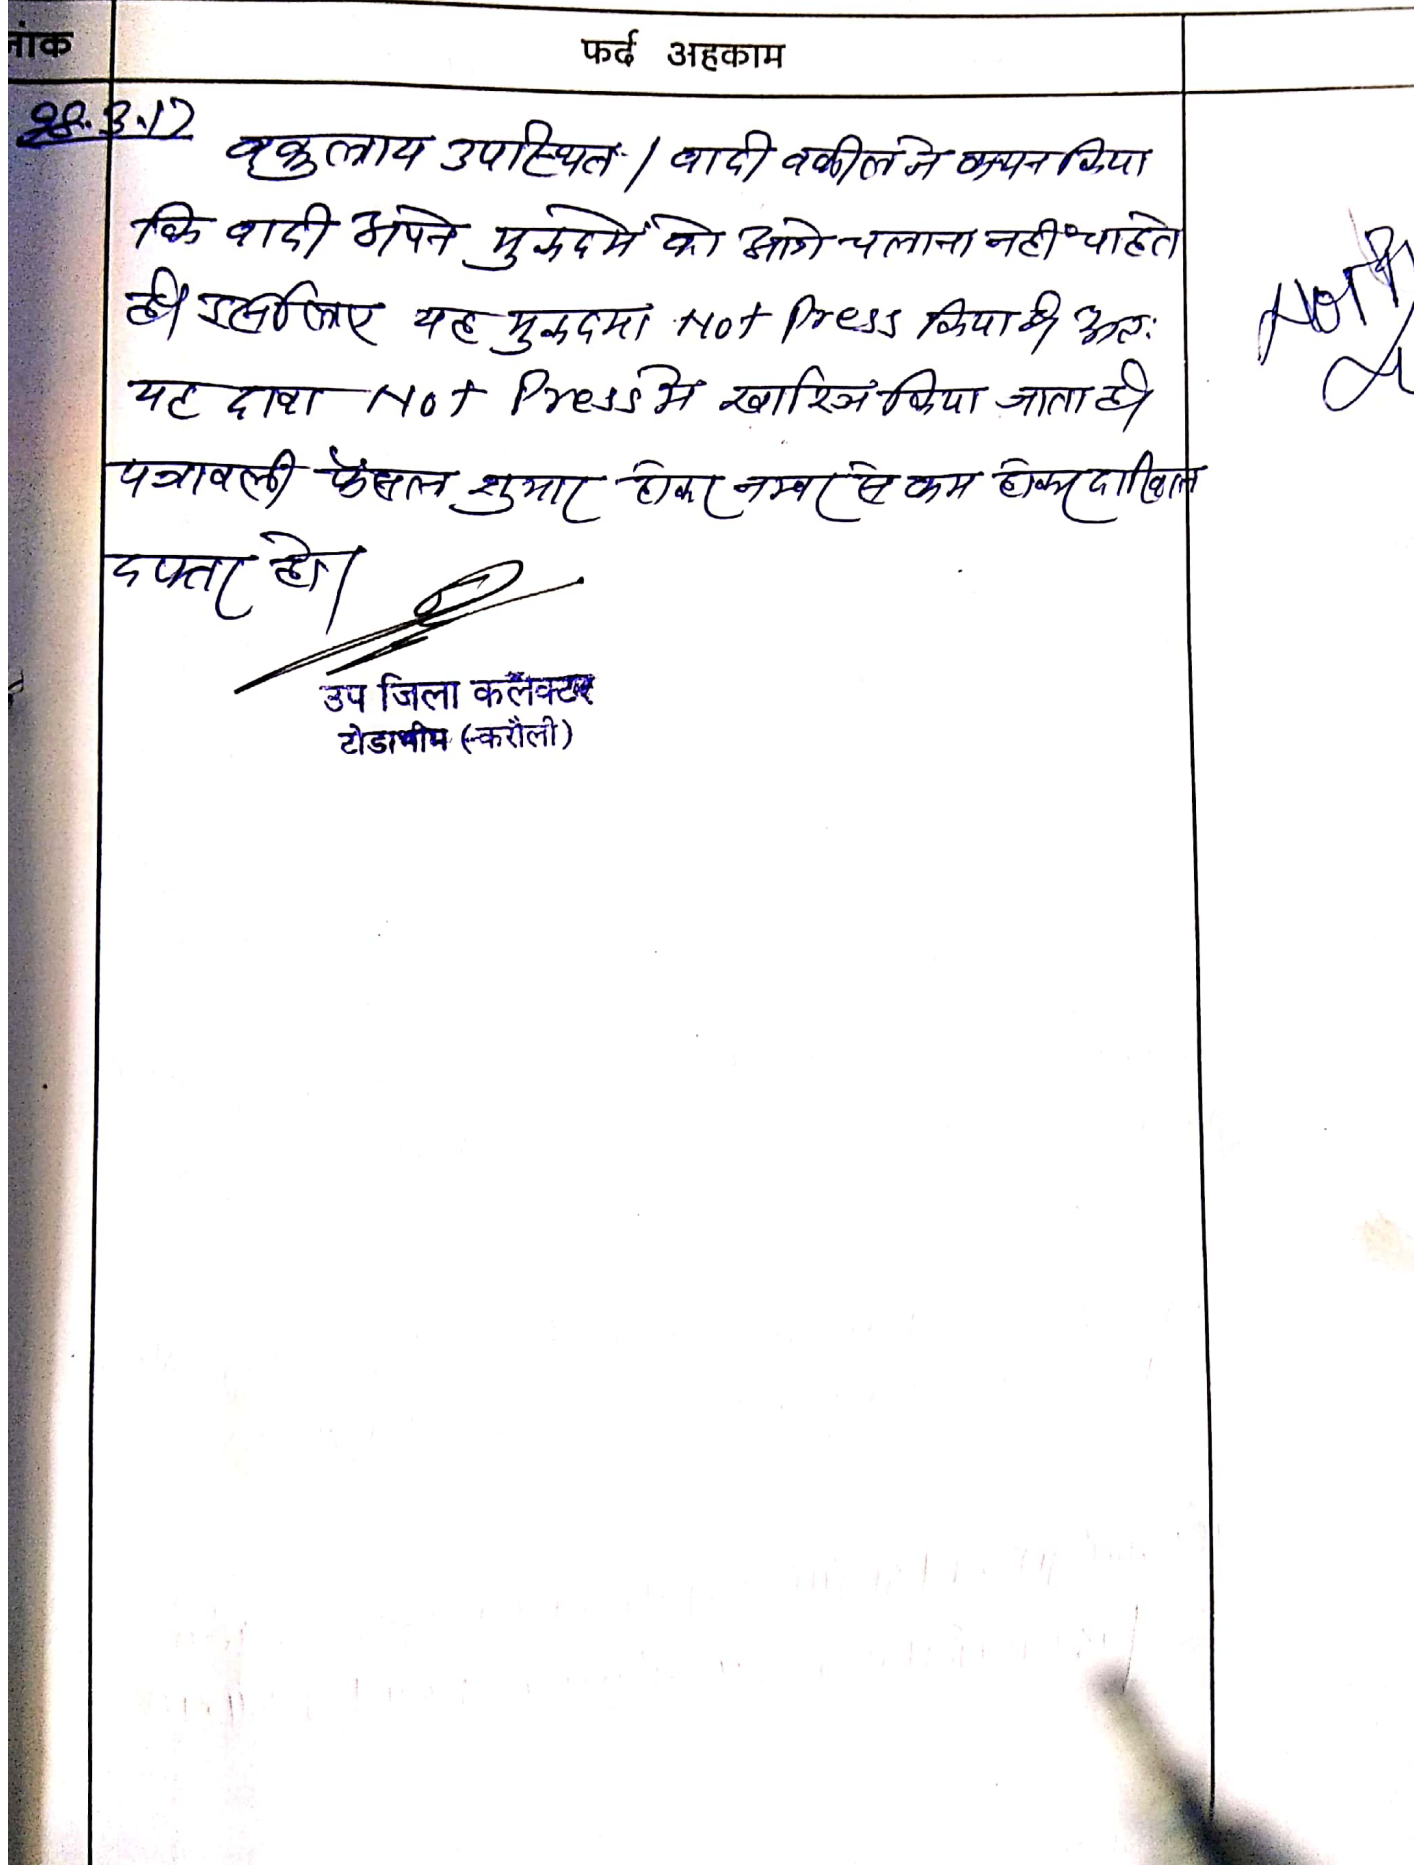 नांक
फर्द अहकाम
28.3.12
वकुलाय उपस्थित। वादी वकील ने कथन किया
कि वादी अपने मुकदमें को आगे चलाना नहीं चाहते
है। इसलिए यह मुकदमा Not Press किया है। अतः
यह दावा Not Press में खारिज किया जाता है।
पत्रावली फैसल शुमार होकर नम्बर से कम होकर दाखिल
दफ्तर हो।
उप जिला कलैक्टर
टोडाभीम (करौली)
Not